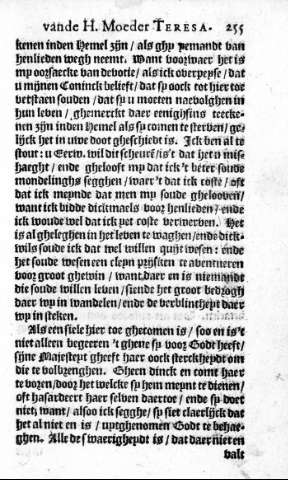 vande H. Moeder TERESA. 255
kenen inden Hemel zijn / als ghy yemandt van
henlieden wegh neemt. Want voorwaer het is
my oorsaecke van devotie / als ick overpeyse / dat
u mijnen Coninck belieft / dat sp oock tot hier toe
verstaen souden / dat sp u moeten naevolghen in
hun leven / ghemerckt daer eenighsins teecke-
nen zijn inden Hemel als sp comen te sterven / ge-
lijck het in uwe doot gheschiedt is. Ick ben al te
stout: u Eerw. wil dit scheuren / is't dat het u mis-
haeght / ende ghelooft my dat ick 't beter soude
mondelinghs segghen / waer't dat ick coste / oft
dat ick meynde dat men my soude ghelooven /
want ick bidde dickmaels voor henlieden / ende
ick woude wel dat ick yet coste verwerven. Het
is al gheleghen in het leven te waghen / ende dick-
wils soude ick dat wel willen quijt wesen: ende
het soude wesen een cleyn prijsken te aventuren
voor groot ghewin / want daer en is niemandt
die soude willen leven / siende het groot bedrogh
daer wp in wandelen / ende de verblintheyt daer
wp in steken.
Als een siele hier toe ghecomen is / soo en is't
niet alleen begeeren 't ghene sp voor Godt heeft /
sijne Majesteyt gheeft haer oock sterckheydt om
die te volbrenghen. Gheen dinck en comt haer
te voren / door het welcke sp hem meynt te dienen /
oft hasardeert haer selven daertoe / ende sp doet
niet; want / alsoo ick segghe / sp siet claerlijck dat
het al niet en is / uytghenomen Godt te behae-
ghen. Alle de swaerigheydt is / dat daer niet en
valt